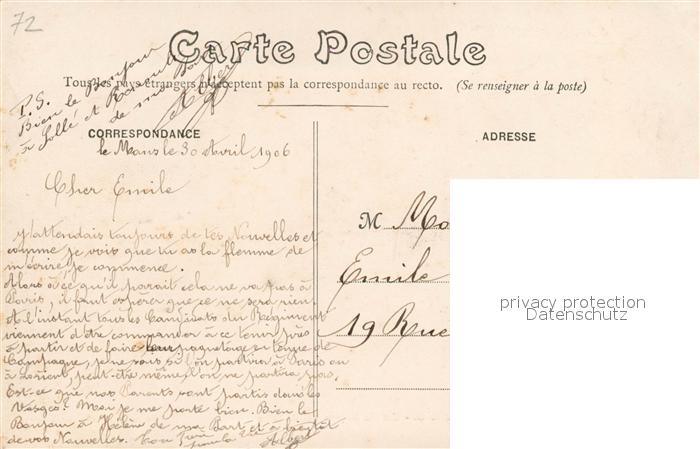 72
Carte Postale
Tous les pays étrangers n'acceptent pas la correspondance au recto. (Se renseigner à la poste)
P.S.
Bien le Bonjour
à Lollé et
de ma Part
CORRESPONDANCE
ADRESSE
le Mans le 30 Avril 1906
Cher Emile
J'attendais toujours de tes Nouvelles et
comme je vois que tu as la flemme de
m'écrire, je commence.
Alors à ce qu'il parait cela ne va pas à
Paris, il faut espérer que ce ne sera rien.
A l'instant tous les du Régiment
viennent d'être commander à ce tenir près
à partir et de faire leur paquetage en tenue de
Campagne, je ne sais si l'on partira à Paris ou
à Lorient, peut-être même l'on ne partira pas.
Est-ce que nos Parents sont partis dans les
Vosges? Moi je me porte bien. Bien le
Bonjour à Hélène de ma Part et à bientôt
de vos Nouvelles. Ton Frère
Albert
M Mo
Emile
19 Rue
privacy protection
Datenschutz